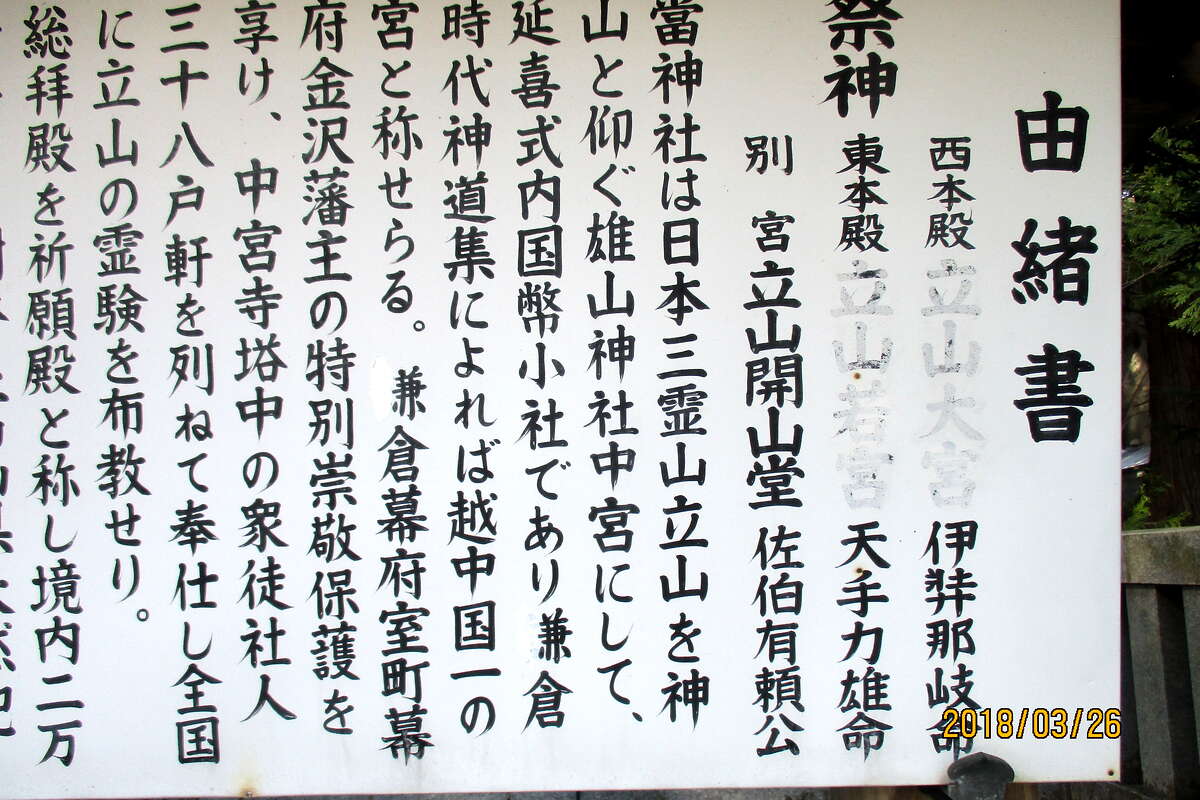 由緒書
西本殿 立山大宮 伊弉那岐命
祭神 東本殿 立山若宮 天手力雄命
別宮 立山開山堂 佐伯有頼公
當神社は日本三霊山立山を神
山と仰ぐ雄山神社中宮にして、
延喜式内国幣小社であり兼倉
時代神道集によれば越中国一の
宮と称せらる。兼倉幕府室町幕
府金沢藩主の特別崇敬保護を
享け、中宮寺塔中の衆徒社人
三十八戸軒を列ねて奉仕し全国
に立山の霊験を布教せり。
総拝殿を祈願殿と称し境内二万
2018/03/26